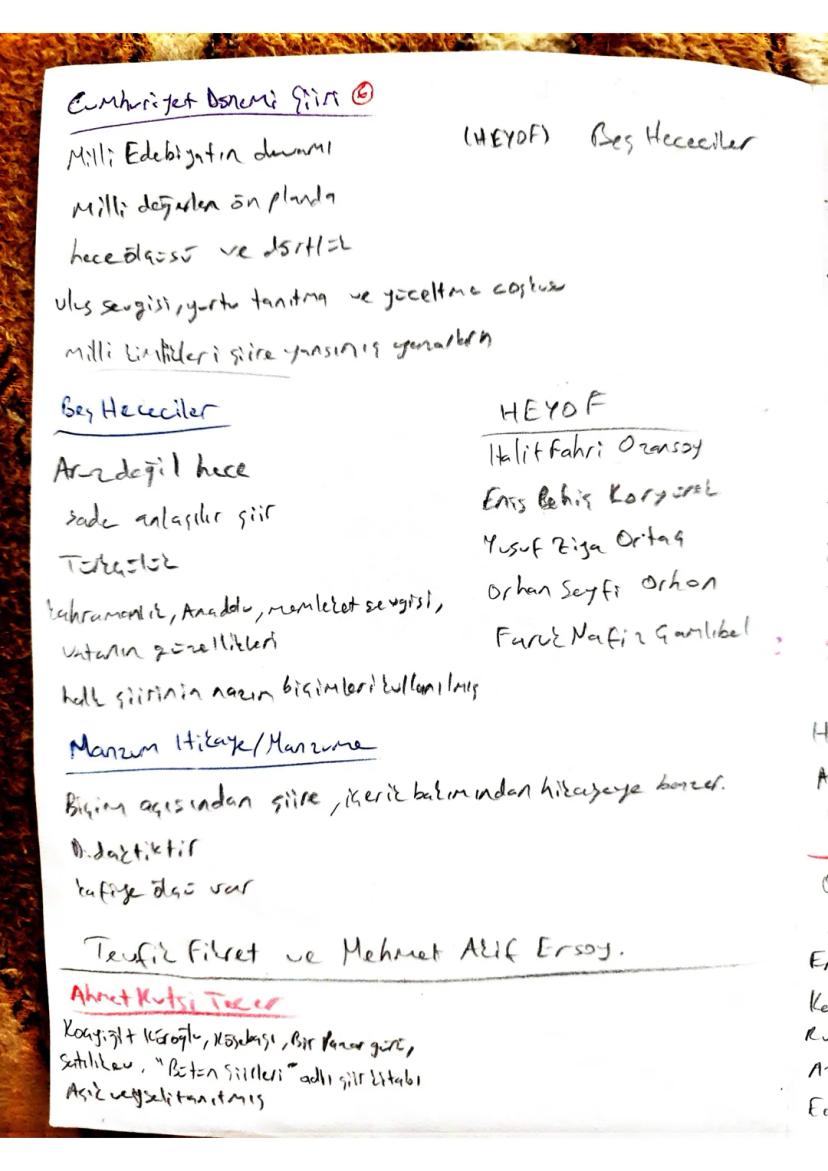 Cumhuriyet Dönemi Şiiri 6
Milli Edebiyatın devamı
(HEYOF) Beş Hececiler
Milli değerler ön planda
hece ölçüsü ve dörtlük
ulus sevgisi, yurtu tanıtma ve yüceltme coşkusu
milli kimlikleri şiire yansımış
Beş Hececiler
Aruz değil hece
sade anlaşılır şiir
Türkçülük
kahramanlık, Anadolu, memleket sevgisi,
vatanın güzellikleri
halk şiirinin nazım biçimleri kullanılmış
HEYOF
Halit Fahri Ozansoy
Enis Behiç Koryürek
Yusuf Ziya Ortaç
Orhan Seyfi Orhon
Faruk Nafiz Çamlıbel
Manzum Hikaye/Manzume
Biçim açısından şiire, içerik bakımından hikayeye benzer.
Didaktiktir
kafiye ölçü var
Tevfik Fikret ve Mehmet Akif Ersoy.
Ahmet Kutsi Tecer
Koçyiğit Köroğlu, Köşebaşı, Bir Pazar günü,
Satılık ev, "Bütün Şiirleri" adlı şiir kitabı
Aşık veyseli tanıtmış